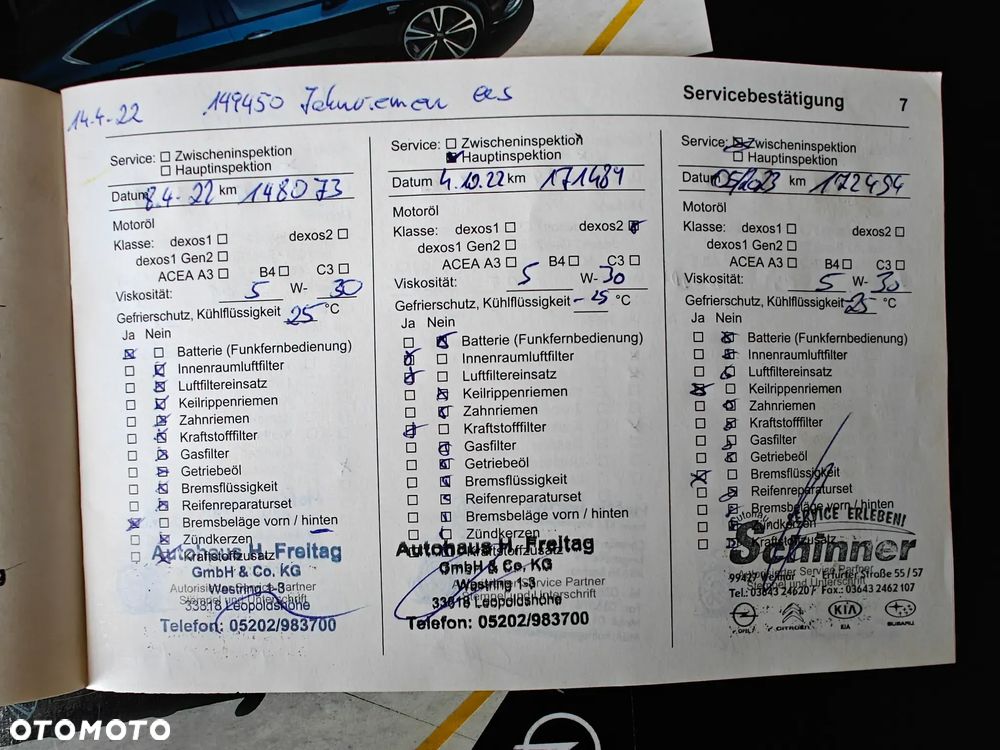 14.4.22 149450 Zahnriemen
Servicebestätigung 7
Service: Zwischeninspektion
Hauptinspektion
Datum 8.4.22 km 148073
Motoröl
Klasse: dexos1 dexos2
dexos1 Gen2
ACEA A3 B4 C3
Viskosität: 5 W- 30
Gefrierschutz, Kühlflüssigkeit 25 °C
Ja Nein
Batterie (Funkfernbedienung)
Innenraumluftfilter
Luftfiltereinsatz
Keilrippenriemen
Zahnriemen
Kraftstofffilter
Gasfilter
Getriebeöl
Bremsflüssigkeit
Reifenreparaturset
Bremsbeläge vorn / hinten
Zündkerzen
Kraftstoffzusatz
Autohaus H. Freitag
GmbH & Co. KG
Autorisierter Service Partner
Westring 1-3
Stempel und Unterschrift
33818 Leopoldshöhe
Telefon: 05202/983700
Service: Zwischeninspektion
Hauptinspektion
Datum 4.10.22 km 171484
Motoröl
Klasse: dexos1 dexos2
dexos1 Gen2
ACEA A3 B4 C3
Viskosität: 5 W- 30
Gefrierschutz, Kühlflüssigkeit -25 °C
Ja Nein
Batterie (Funkfernbedienung)
Innenraumluftfilter
Luftfiltereinsatz
Keilrippenriemen
Zahnriemen
Kraftstofffilter
Gasfilter
Getriebeöl
Bremsflüssigkeit
Reifenreparaturset
Bremsbeläge vorn / hinten
Zündkerzen
Kraftstoffzusatz
Autohaus H. Freitag
GmbH & Co. KG
Autorisierter Service Partner
Westring 1-3
Stempel und Unterschrift
33818 Leopoldshöhe
Telefon: 05202/983700
Service: Zwischeninspektion
Hauptinspektion
Datum 05/2023 km 172454
Motoröl
Klasse: dexos1 dexos2
dexos1 Gen2
ACEA A3 B4 C3
Viskosität: 5 W- 30
Gefrierschutz, Kühlflüssigkeit -25 °C
Ja Nein
Batterie (Funkfernbedienung)
Innenraumluftfilter
Luftfiltereinsatz
Keilrippenriemen
Zahnriemen
Kraftstofffilter
Gasfilter
Getriebeöl
Bremsflüssigkeit
Reifenreparaturset
Bremsbeläge vorn / hinten
Zündkerzen
Kraftstoffzusatz
Autohaus SERVICE ERLEBEN!
Schinner
Autorisierter Service Partner
99427 Weimar Erfurter Straße 55/57
Stempel und Unterschrift
Tel.: 03643 24620 Fax.: 03643 2462 107
OPEL CITROËN KIA SUBARU
OTOMOTO